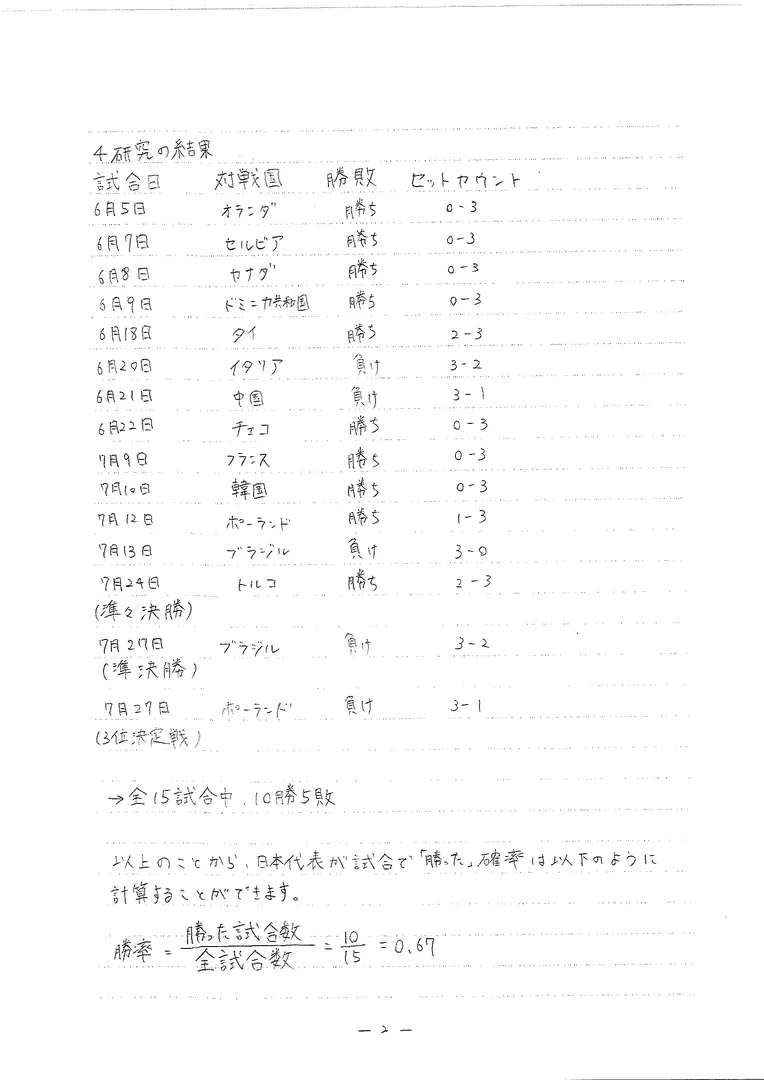 4 研究の結果
試合日 対戦国 勝敗 セットカウント
6月5日 オランダ 勝ち 0-3
6月7日 セルビア 勝ち 0-3
6月8日 カナダ 勝ち 0-3
6月9日 ドミニカ共和国 勝ち 0-3
6月18日 タイ 勝ち 2-3
6月20日 イタリア 負け 3-2
6月21日 中国 負け 3-1
6月22日 チェコ 勝ち 0-3
7月9日 フランス 勝ち 0-3
7月10日 韓国 勝ち 0-3
7月12日 ポーランド 勝ち 1-3
7月13日 ブラジル 負け 3-0
7月24日 トルコ 勝ち 2-3
(準々決勝)
7月27日 ブラジル 負け 3-2
(準決勝)
7月27日 ポーランド 負け 3-1
(3位決定戦)
→全15試合中、10勝5敗
以上のことから、日本代表が試合で「勝った」確率は以下のように
計算することができます。
勝率 = 勝った試合数/全試合数 = 10/15 = 0.67
— 2 —